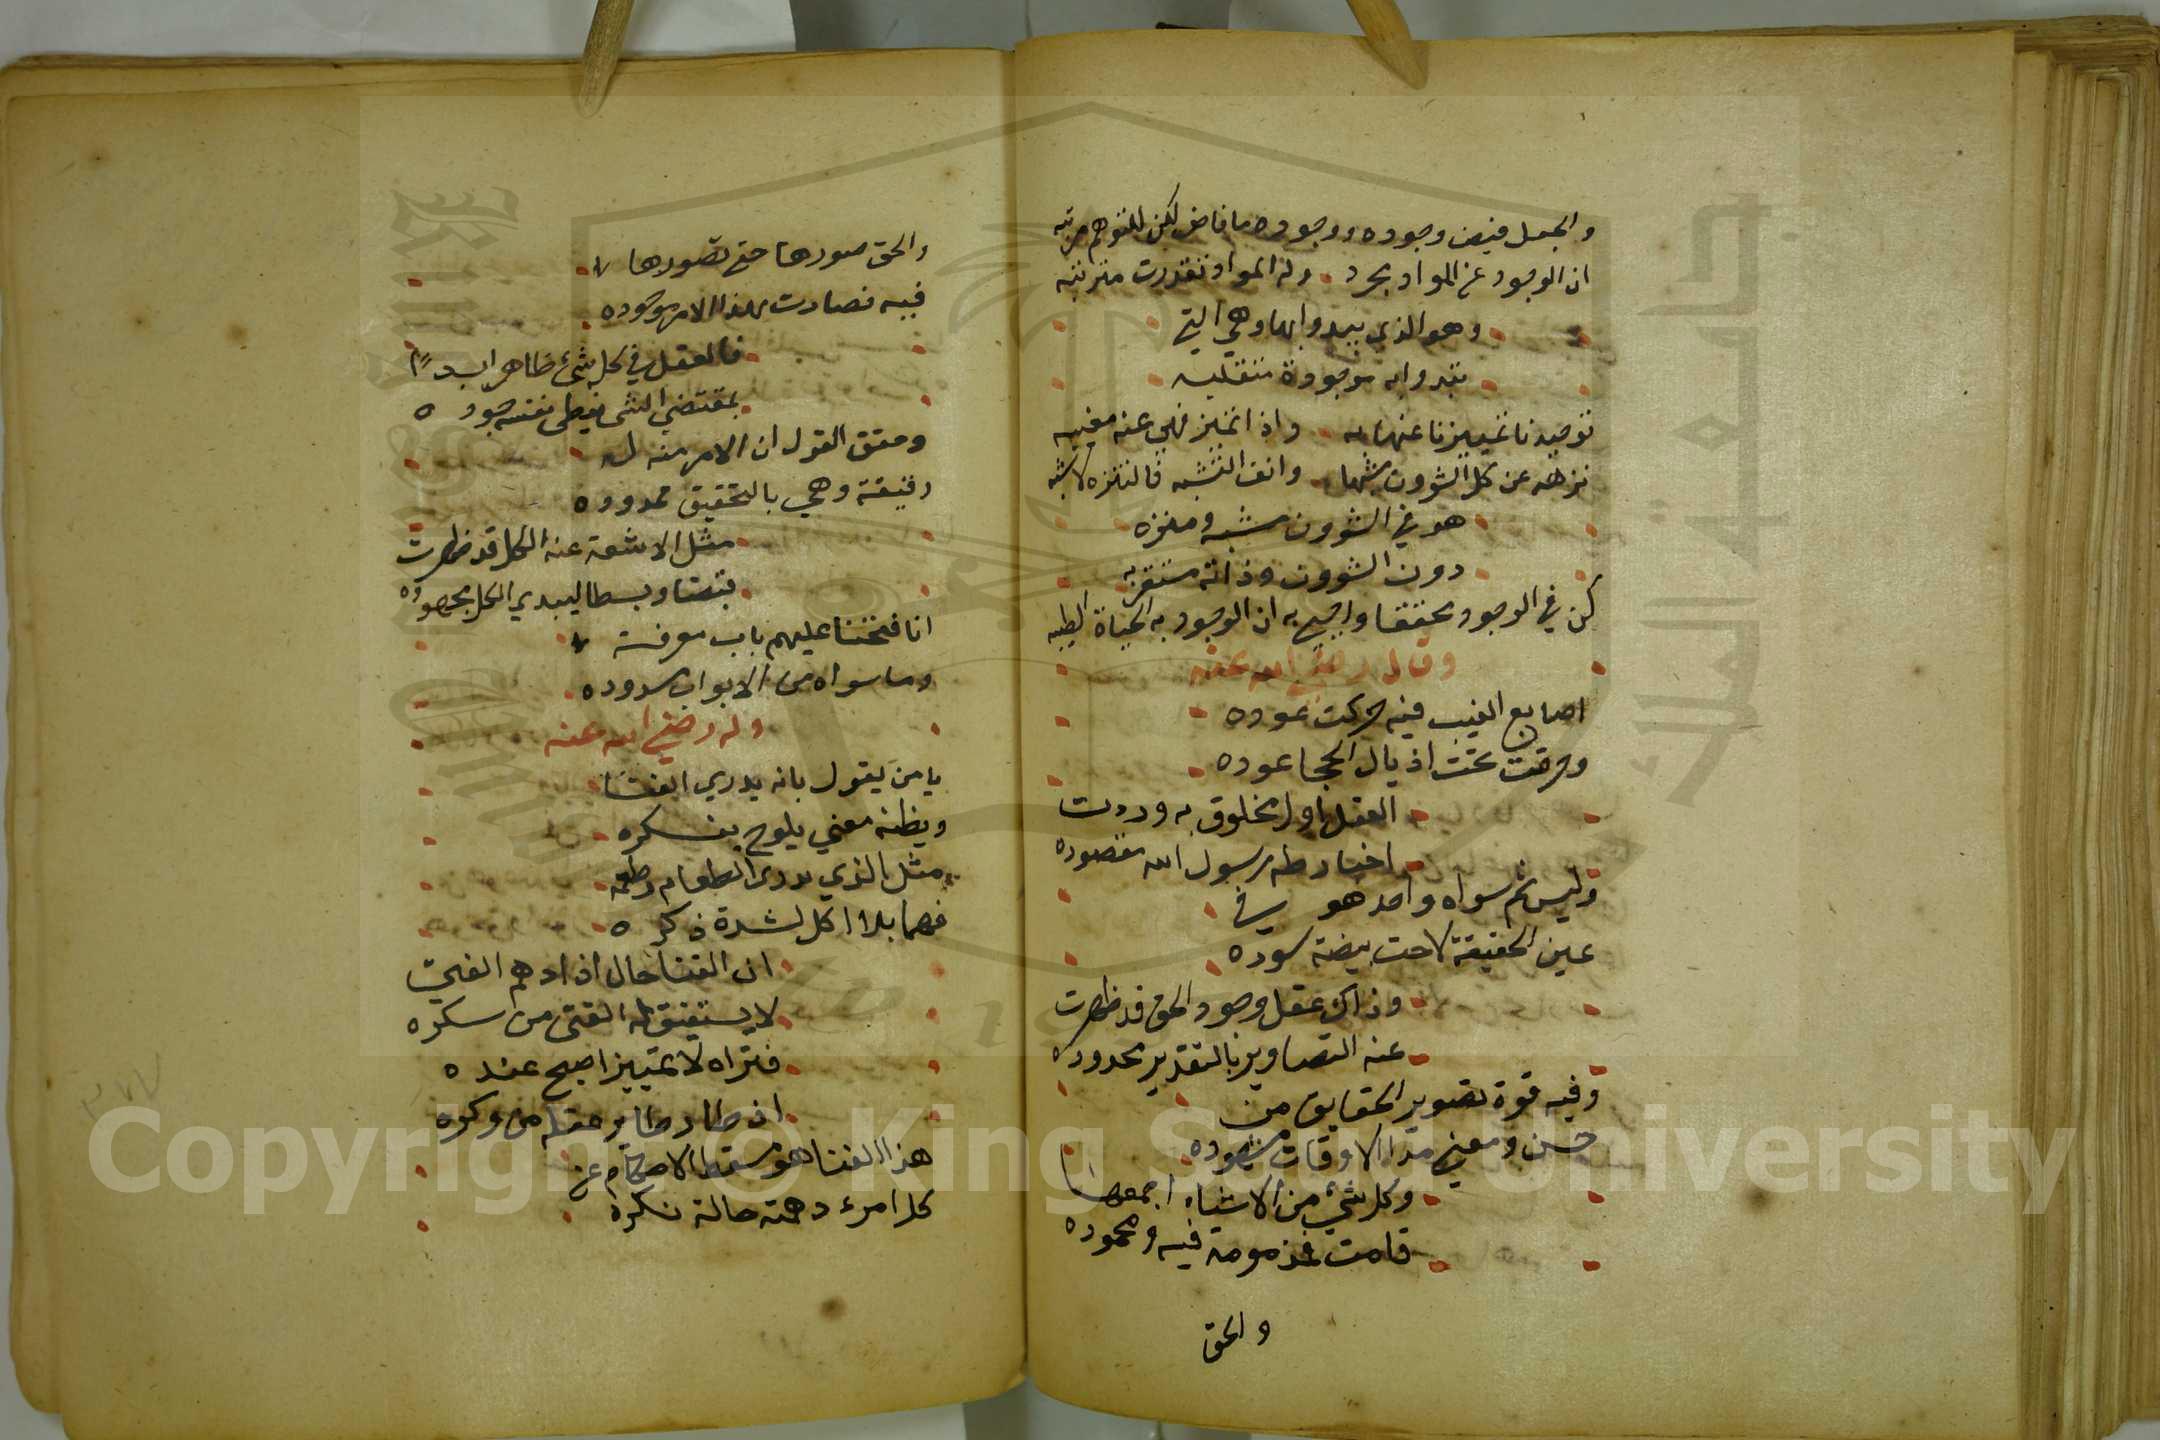 والجعل فيض وجوده ووجوده ما فاض لكن للتوهم مرتبه
ان الوجود عن المواد مجرد وله المواد تقدرت مترتبه
وهو الذي يبدو بها وهي التي
تبدو به موجودة متقلبه
توحيدنا تمييزنا عنها به واذا تميز فهي عنه مغيبه
نزهه عن كل الشوون بشبهها وانف التشبه فالتنزه لا شبه
هو في الشوون مشبه ومنزه
دون الشوون وذاته مستقربه
كن في الوجود محققا وابحي به ان الوجود به الحياة الطيبه
وقال رضي الله عنه
اصابع الغيب فينا حركت عوده
وحرقت تحت اذيال الحجا عوده
العقل اول مخلوق به وردت
اخبار طه رسول الله مقصوده
وليس ثم سواه واحد هو في
عين الحقيقة لاحت بيضة سوده
وذاك عقل وجود الحق قد ظهرت
عنه التصاوير بالتقدير محدوده
وفيه قوة تصوير الحقايق من
حسن ومعني مدا الاوقات مشهوده
وكل شيء من الاشياء اجمعها
قامت فمذمومة فيه ومحموده
والحق
والحق صورها حتى تصورها
فيه فصارت بهذا الامر موجوده
فالعقل في كل شيء ظاهر ابدا
بمقتضى الشي يعطى نفسه جوده
وحقق القول ان الامر منه له
رقيقة وهي بالتحقيق ممدوده
مثل الاشعة عنه الكل قد ظهرت
قبضا وبسطا ليبدي الكل مجهوده
انا فتحنا عليهم باب معرفة
وما سواه من الابواب مسدوده
وله رضي الله عنه
يا من يقول بانه يدري الفنا
ويظنه معني يلوح بفكره
مثل الذي يدري الطعام وطعمه
فهما بلا اكل لشدة ذكره
ان الفنا حال اذا دهم الفتى
لا يستفيق له الفتى من سكره
فتراه لا تمييز اصبح عنده
اذ طار طاير عقله من وكره
هذا الفنا هو مسقط الاحكام عن
كل امرء دهمته حالة نكره
Copyright © King Saud University